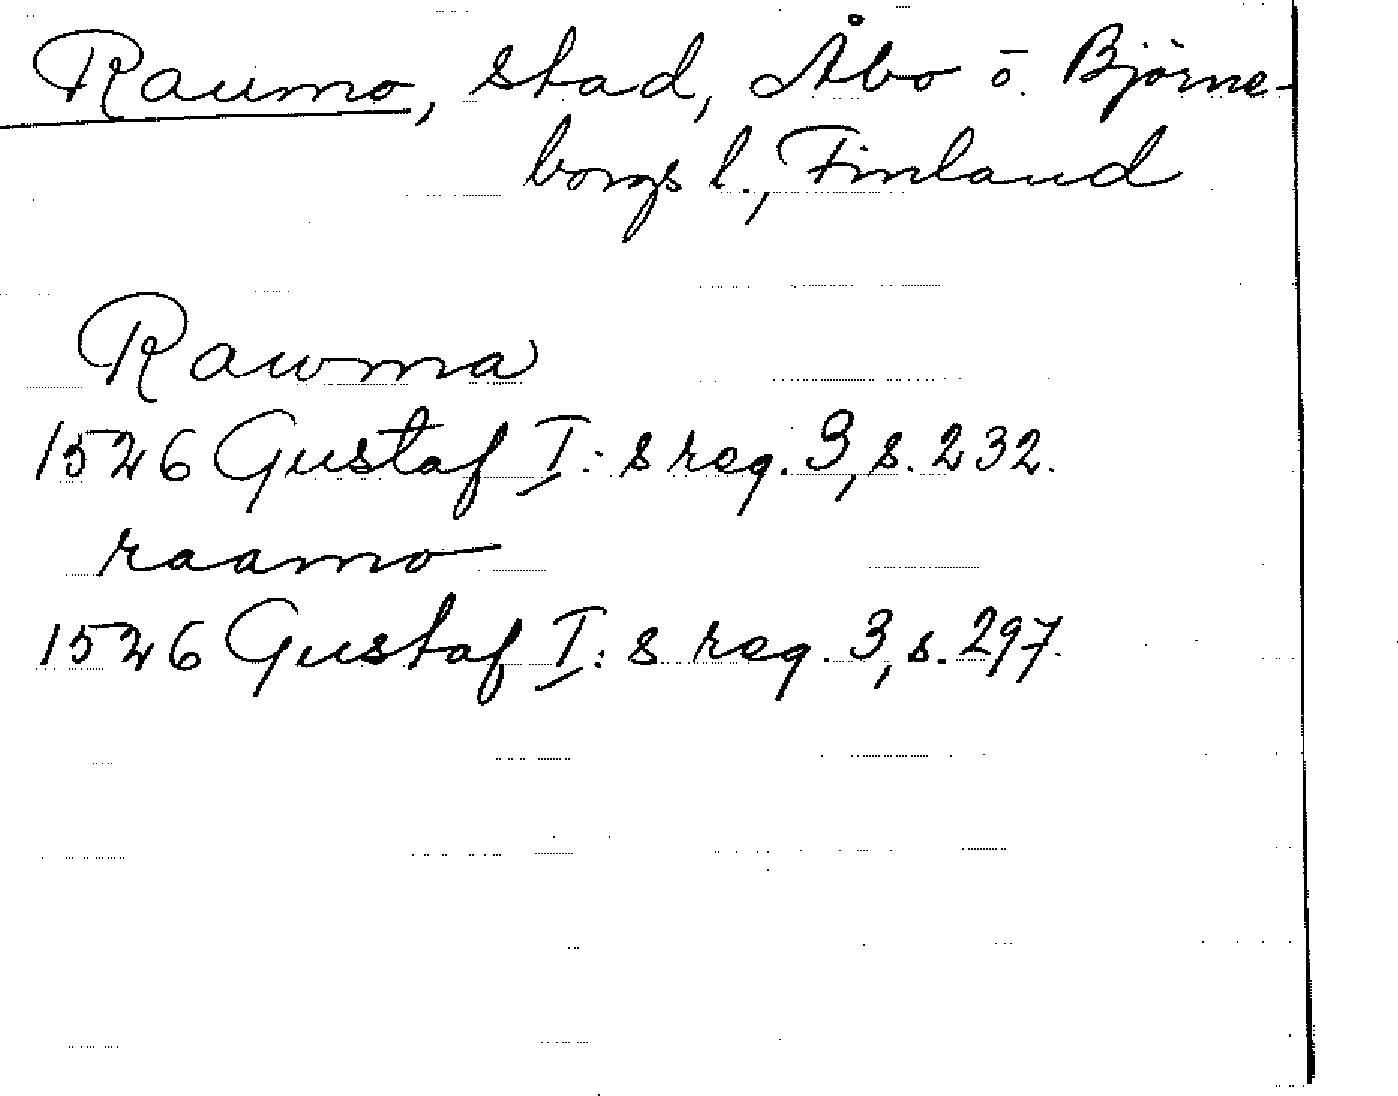 Raumo, stad, Åbo o. Björne-
borgs l., Finland
Rawma
1526 Gustaf I:s reg. 3, s. 232.
raamo
1526 Gustaf I:s reg. 3, s. 297.